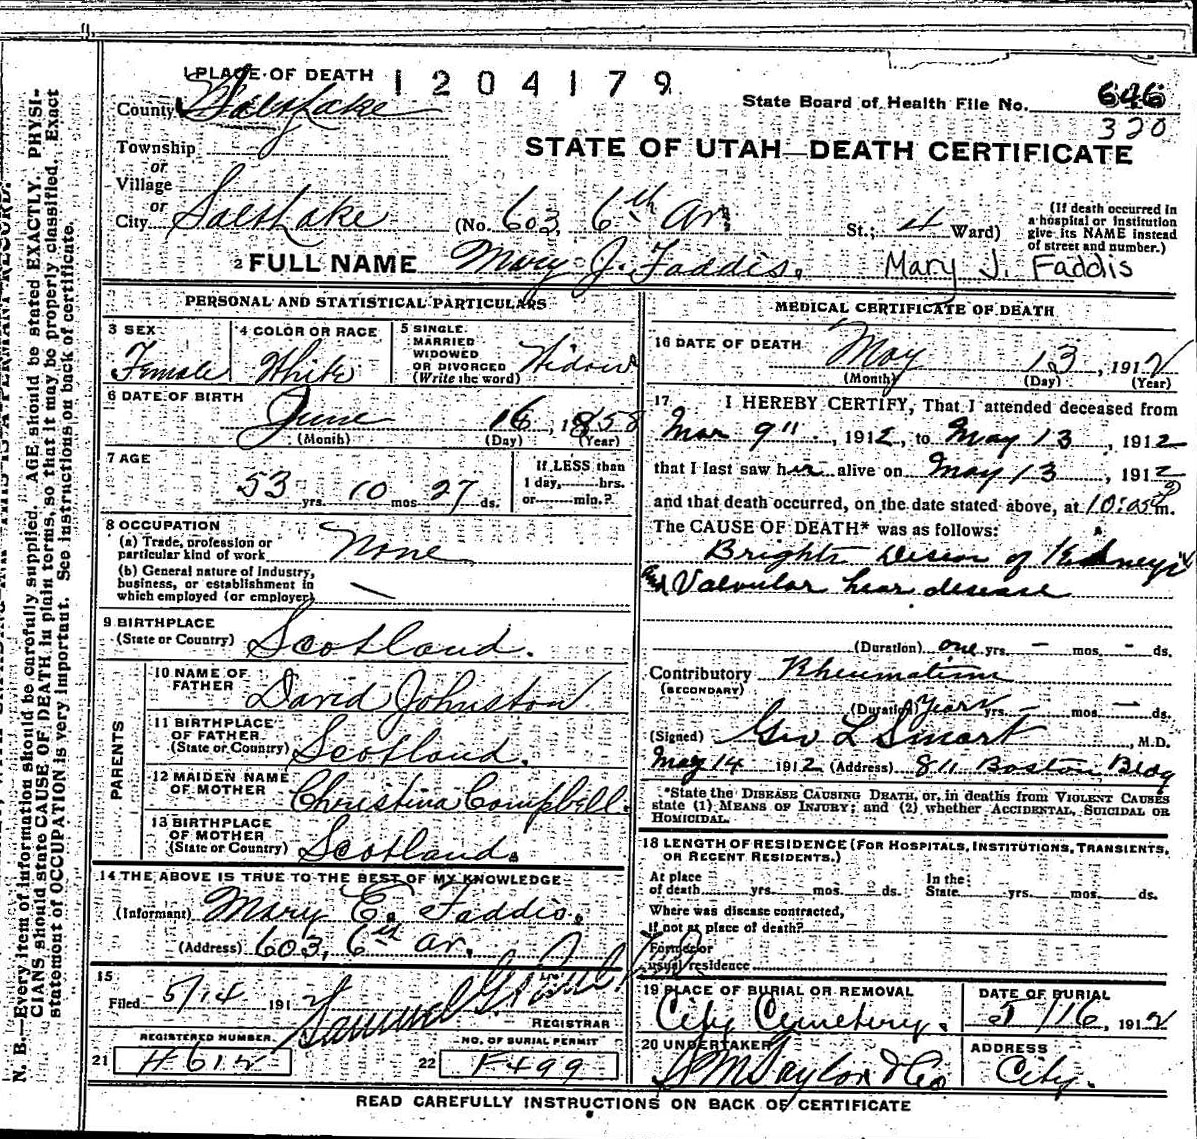 1 PLACE OF DEATH 1204179
County Salt Lake
State Board of Health File No. 646
320
Township
or
Village
or
City Salt Lake (No. 603, 6th Av. St.; 4 Ward)
STATE OF UTAH—DEATH CERTIFICATE
(If death occurred in a hospital or institution give its NAME instead of street and number.)
2 FULL NAME Mary J. Faddis. Mary J. Faddis
PERSONAL AND STATISTICAL PARTICULARS
3 SEX Female
4 COLOR OR RACE White
5 SINGLE, MARRIED WIDOWED OR DIVORCED (Write the word) Widow
6 DATE OF BIRTH June 16, 1858
(Month) (Day) (Year)
7 AGE 53 yrs. 10 mos. 27 ds.
If LESS than 1 day, hrs. or min.?
8 OCCUPATION
(a) Trade, profession or particular kind of work None
(b) General nature of industry, business, or establishment in which employed (or employer) —
9 BIRTHPLACE
(State or Country) Scotland.
PARENTS
10 NAME OF FATHER David Johnston
11 BIRTHPLACE OF FATHER (State or Country) Scotland.
12 MAIDEN NAME OF MOTHER Christina Campbell.
13 BIRTHPLACE OF MOTHER (State or Country) Scotland.
14 THE ABOVE IS TRUE TO THE BEST OF MY KNOWLEDGE
(Informant) Mary E. Faddis.
(Address) 603, 6th av.
15
Filed 5/14 191 Samuel G.
REGISTRAR
REGISTERED NUMBER.
21 H612
NO. OF BURIAL PERMIT
22 F499
MEDICAL CERTIFICATE OF DEATH
16 DATE OF DEATH May 13, 1912
(Month) (Day) (Year)
17 I HEREBY CERTIFY, That I attended deceased from
Mar 9", 1912, to May 13, 1912
that I last saw her alive on May 13, 1912
and that death occurred, on the date stated above, at 10:05 P m.
The CAUSE OF DEATH* was as follows:
Brights Disease of Kidneys
and Valvular hear disease
(Duration) one yrs. – mos. – ds.
Contributory Rheumatism
(SECONDARY)
(Duration) years yrs. – mos. – ds.
(Signed) Geo L Smart, M.D.
May 14 1912 (Address) 811 Boston Bldg
*State the DISEASE CAUSING DEATH, or, in deaths from VIOLENT CAUSES
state (1) MEANS OF INJURY; and (2) whether ACCIDENTAL, SUICIDAL OR
HOMICIDAL.
18 LENGTH OF RESIDENCE (FOR HOSPITALS, INSTITUTIONS, TRANSIENTS,
OR RECENT RESIDENTS.)
At place of death yrs. mos. ds. In the State yrs. mos. ds.
Where was disease contracted,
If not at place of death?
Former or
usual residence
19 PLACE OF BURIAL OR REMOVAL City Cemetery.
DATE OF BURIAL 5/16, 1912
20 UNDERTAKER S M Taylor & Co
ADDRESS City.
READ CAREFULLY INSTRUCTIONS ON BACK OF CERTIFICATE
N. B.—Every item of information should be carefully supplied. AGE should be stated EXACTLY. PHYSI-
CIANS should state CAUSE OF DEATH in plain terms, so that it may be properly classified. Exact
statement of OCCUPATION is very important. See instructions on back of certificate.